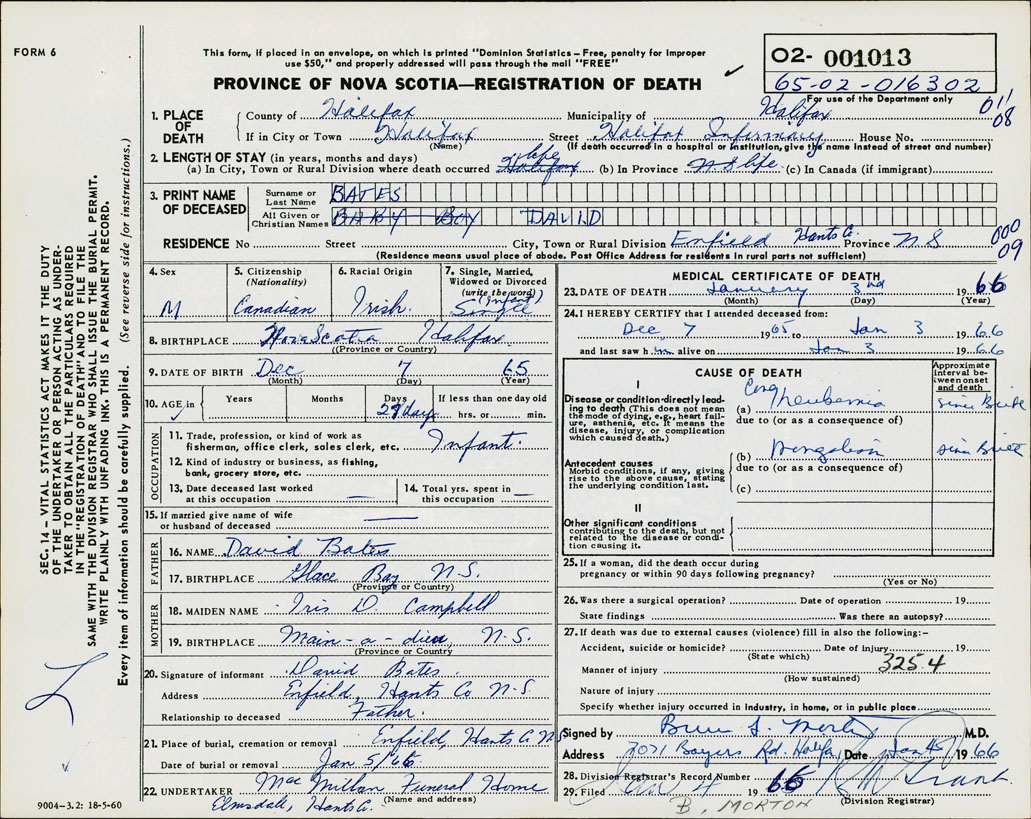 FORM 6
This form, if placed in an envelope, on which is printed "Dominion Statistics – Free, penalty for improper
use $50," and properly addressed will pass through the mail "FREE"
PROVINCE OF NOVA SCOTIA—REGISTRATION OF DEATH ✓
02- 001013
65-02-016302
For use of the Department only
011
08
1. PLACE OF DEATH
County of Halifax Municipality of Halifax
If in City or Town Halifax Street Halifax Infirmary House No.
(Name) (If death occurred in a hospital or institution, give the name instead of street and number)
2. LENGTH OF STAY (in years, months and days)
(a) In City, Town or Rural Division where death occurred Halifax life (b) In Province N S life (c) In Canada (if immigrant)
3. PRINT NAME OF DECEASED
Surname or Last Name BATES
All Given or Christian Names BABY BOY DAVID
RESIDENCE No Street City, Town or Rural Division Enfield Hants Co. Province N S
000
09
(Residence means usual place of abode. Post Office Address for residents in rural parts not sufficient)
4. Sex
M
5. Citizenship
(Nationality)
Canadian
6. Racial Origin
Irish
7. Single, Married,
Widowed or Divorced
(write the word)
(infant)
Single
8. BIRTHPLACE Nova Scotia Halifax
(Province or Country)
9. DATE OF BIRTH Dec 7 65
(Month) (Day) (Year)
10. AGE in Years Months Days If less than one day old
27 days hrs. or min.
OCCUPATION
11. Trade, profession, or kind of work as
fisherman, office clerk, sales clerk, etc. Infant.
12. Kind of industry or business, as fishing,
bank, grocery store, etc.
13. Date deceased last worked
at this occupation
14. Total yrs. spent in
this occupation
15. If married give name of wife
or husband of deceased
FATHER
16. NAME David Bates
17. BIRTHPLACE Glace Bay N.S.
(Province or Country)
MOTHER
18. MAIDEN NAME Iris D. Campbell
19. BIRTHPLACE Main-a-dieu, N.S.
(Province or Country)
20. Signature of informant David Bates.
Address Enfield, Hants Co N.S.
Relationship to deceased Father.
21. Place of burial, cremation or removal Enfield, Hants Co NS
Date of burial or removal Jan 5/66.
22. UNDERTAKER Mac Millan Funeral Home
(Name and address)
Elmsdale, Hants Co.
9004–3.2: 18-5-60
MEDICAL CERTIFICATE OF DEATH
23. DATE OF DEATH January 3rd 1966
(Month) (Day) (Year)
24. I HEREBY CERTIFY that I attended deceased from:
Dec 7 1965 to Jan 3 1966
and last saw him alive on Jan 3 1966
CAUSE OF DEATH
Approximate interval between onset and death
I
Disease or condition directly leading to death (This does not mean the mode of dying, e.g., heart failure, asthenia, etc. It means the disease, injury, or complication which caused death.)
Cong
(a) Leukemia since Birth
due to (or as a consequence of)
Antecedent causes
Morbid conditions, if any, giving rise to the above cause, stating the underlying condition last.
(b) Mongolism since Birth
due to (or as a consequence of)
(c)
II
Other significant conditions
contributing to the death, but not related to the disease or condition causing it.
25. If a woman, did the death occur during
pregnancy or within 90 days following pregnancy?
(Yes or No)
26. Was there a surgical operation? Date of operation 19
State findings Was there an autopsy?
27. If death was due to external causes (violence) fill in also the following:–
Accident, suicide or homicide? Date of injury 19
(State which)
325.4
Manner of injury
(How sustained)
Nature of injury
Specify whether injury occurred in industry, in home, or in public place
Signed by M.D.
Address 3071 Bayers Rd. Halifax Date Jan 4 1966
28. Division Registrar's Record Number
29. Filed Jan 4 1966 Grant
(Division Registrar)
B. MORTON
SEC. 14 – VITAL STATISTICS ACT MAKES IT THE DUTY
OF THE UNDERTAKER OR PERSON ACTING AS UNDER-
TAKER TO OBTAIN ALL THE PARTICULARS REQUIRED
IN THE "REGISTRATION OF DEATH" AND TO FILE THE
SAME WITH THE DIVISION REGISTRAR WHO SHALL ISSUE THE BURIAL PERMIT.
WRITE PLAINLY WITH UNFADING INK. THIS IS A PERMANENT RECORD.
Every item of information should be carefully supplied. (See reverse side for instructions.)